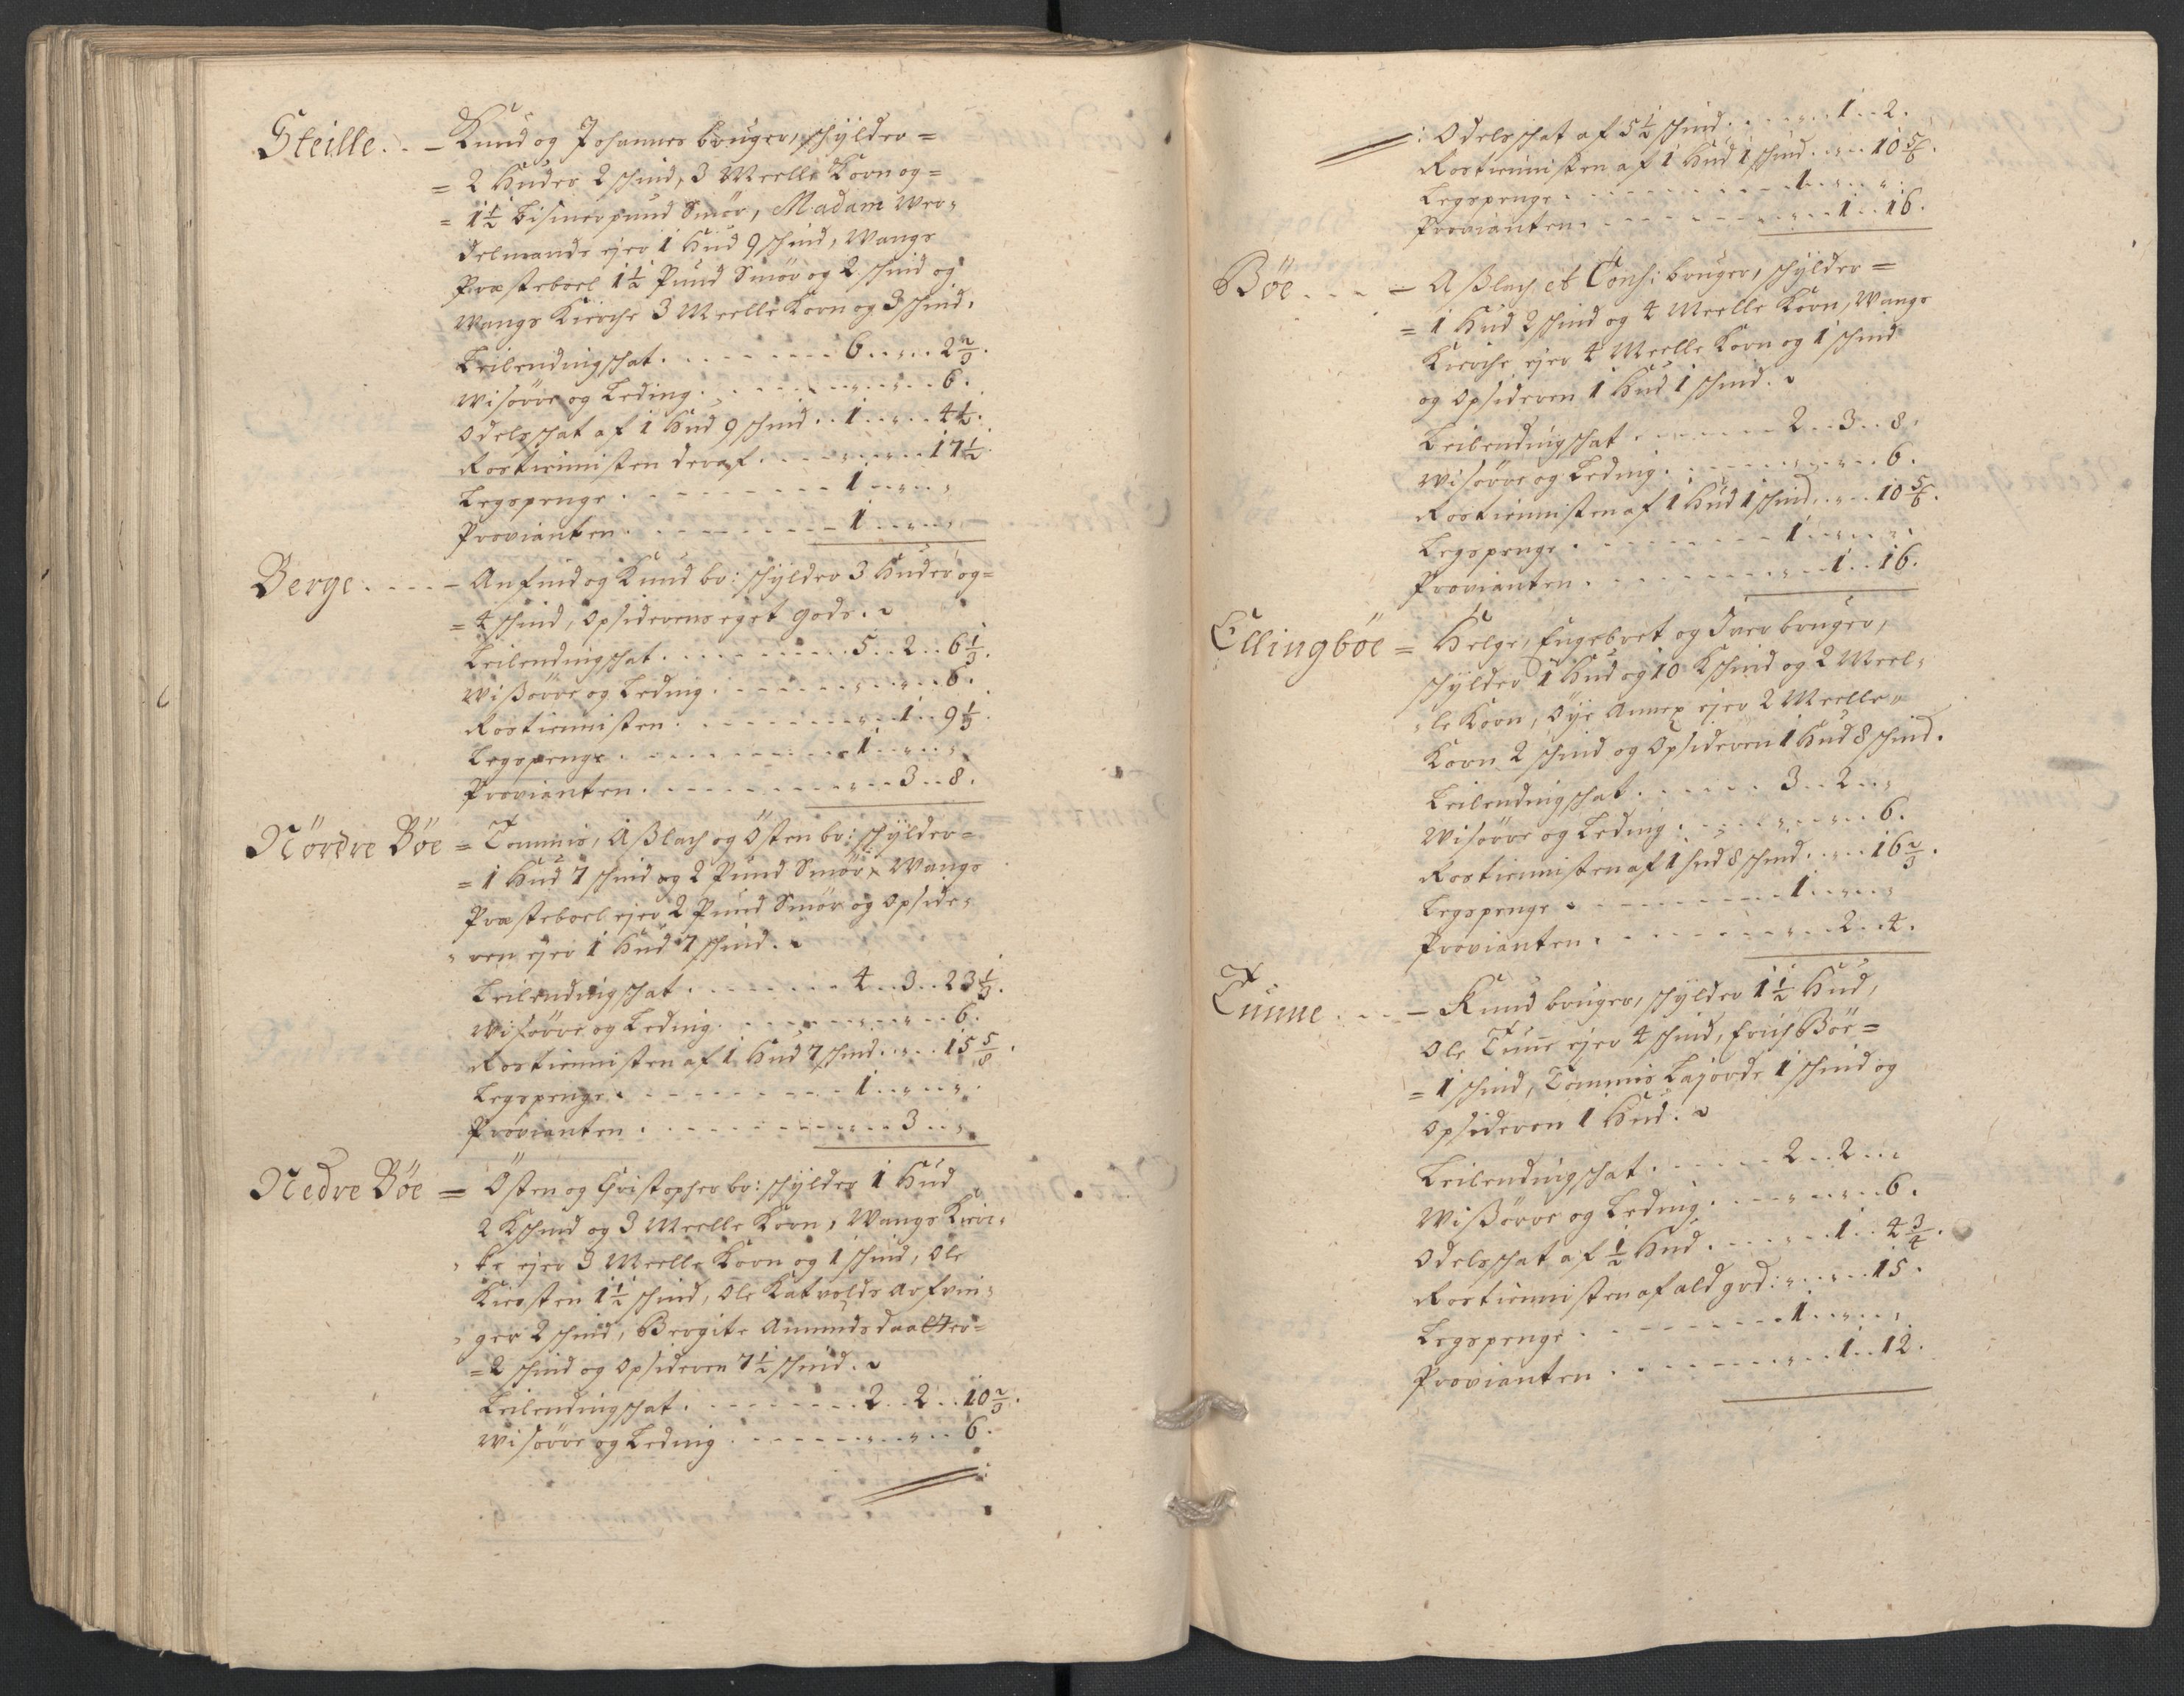 Steille. . – Knud og Johannes bruger, schÿlder =
= 2 Huder 2 schind, 3 Meelle Korn og =
= 1½ Bismerpund Smör, Madam Wer-
delmands ejer 1 Hud 9 schind, Wangs
Præsteboel 1½ Pund Smör og 2 schind og
Wangs Kierche 3 Meelle Korn og 3 schind.
Leilendingschat . . . . . . . 6 . . „ . . 2⅔.
Wisörre og Leding . . . . . . „ . . „ . . 6.
Odelsschat af 1 Hud 9 schind . . 1 . . „ . . 4½.
Rostiennisten deraf . . . . . „ . . „ . . 17½
Legspenge . . . . . . . . 1 . . „ . . „
Provianten . . . . . . . . 1 . . „ . . „
Berge . . . . – Anfind og Knud br: schÿlder 3 Huder og =
= 4 schind, Opsiderens eget gods.
Leilendingschat . . . . . . . . 5 . . 2 . . 6⅓.
Wisörre og Leding . . . . . . „ . . „ . . 6.
Rostiennisten . . . . . . . . „ . . 1 . . 9⅓.
Legspenge . . . . . . . . . 1 . . „ . . „
Provianten . . . . . . . . „ . . 3 . . 8.
Nördre Böe = Tommis, Aßlach og Östen br: schÿlder =
= 1 Hud 7 schind og 2 Pund Smör, Wangs
Præsteboel ejer 2 Pund Smör og Opside-
„ ren ejer 1 Hud 7 schind.
Leilendingschat . . . . . . . 4 . . 3 . . 23⅓.
Wisörre og Leding . . . . . . „ . . „ . . 6.
Rostiennisten af 1 Hud 7 schind . . „ . . 15⅝.
Legspenge . . . . . . . . 1 . . „ . . „
Provianten . . . . . . . . „ . . 3 . . „
Nedre Böe = Östen og Christopher br: schÿlder 1 Hud
2 Kschind og 3 Meelle Korn, Wangs Kier-
„ ke ejer 3 Meelle Korn og 1 schind, Ole
Kiersten 1½ schind, Ole Arfvin-
„ ger 2 schind, Bergite
= 2 schind og Opsideren 7½ schind.
Leilendingschat . . . . . . . 2 . . 2 . . 10⅔.
Wisörre og Leding . . . . . . „ . . „ . . 6.
: Odelsschat af 5½ schind . . . . „ . . 1 . . 2.
Rostiennisten af 1 Hud 1 schind . . „ . . 10⅚.
Legspenge . . . . . . . . . 1 . . „ . . „
Provianten . . . . . . . . „ . . 1 . . 16.
Böe . . . . – Aßlach et Cons: bruger, schÿlder =
= 1 Hud 2 schind og 4 Meelle Korn, Wangs
Kierche ejer 4 Meelle Korn og 1 schind
og Opsideren 1 Hud 1 schind.
Leilendingschat . . . . . . . 2 . . 3 . . 8.
Wisörre og Leding . . . . . . „ . . „ . . 6.
Rostiennisten af 1 Hud 1 schind . . „ . . 10⅚.
Legspenge . . . . . . . . 1 . . „ . . „
Provianten . . . . . . . . „ . . 1 . . 16.
Ellingböe = Helge, Engebret og Iver bruger,
schÿlder 1 Hud og 10 Kschind og 2 Meel-
„ le Korn, Öÿe Annex ejer 2 Meelle „
Korn 2 schind og Opsideren 1 Hud 8 schind.
Leilendingschat . . . . . . 3 . . 2 . . „
Wisörre og Leding . . . . . . „ . . „ . . 6.
Rostiennisten af 1 Hud 8 schind . . „ . . 16⅔.
Legspenge . . . . . . . . 1 . . „ . . „
Provianten . . . . . . . . „ . . 2 . . 4.
Tunne . . . . – Knud bruger, schÿlder 1½ Hud,
Ole Tune ejer 4 schind, Erich Böe =
= 1 schind, Tommis 1 schind og
Opsideren 1 Hud.
Leilendingschat . . . . . . 2 . . 2 . . „
Wißörre og Leding . . . . . „ . . „ . . 6.
Odelsschat af ½ Hud . . . . . „ . . 1 . . 4¾.
Rostiennisten af ald grd: „ . . „ . . 15.
Legspenge . . . . . . . . 1 . . „ . . „
Provianten . . . . . . . . „ . . 1 . . 12.